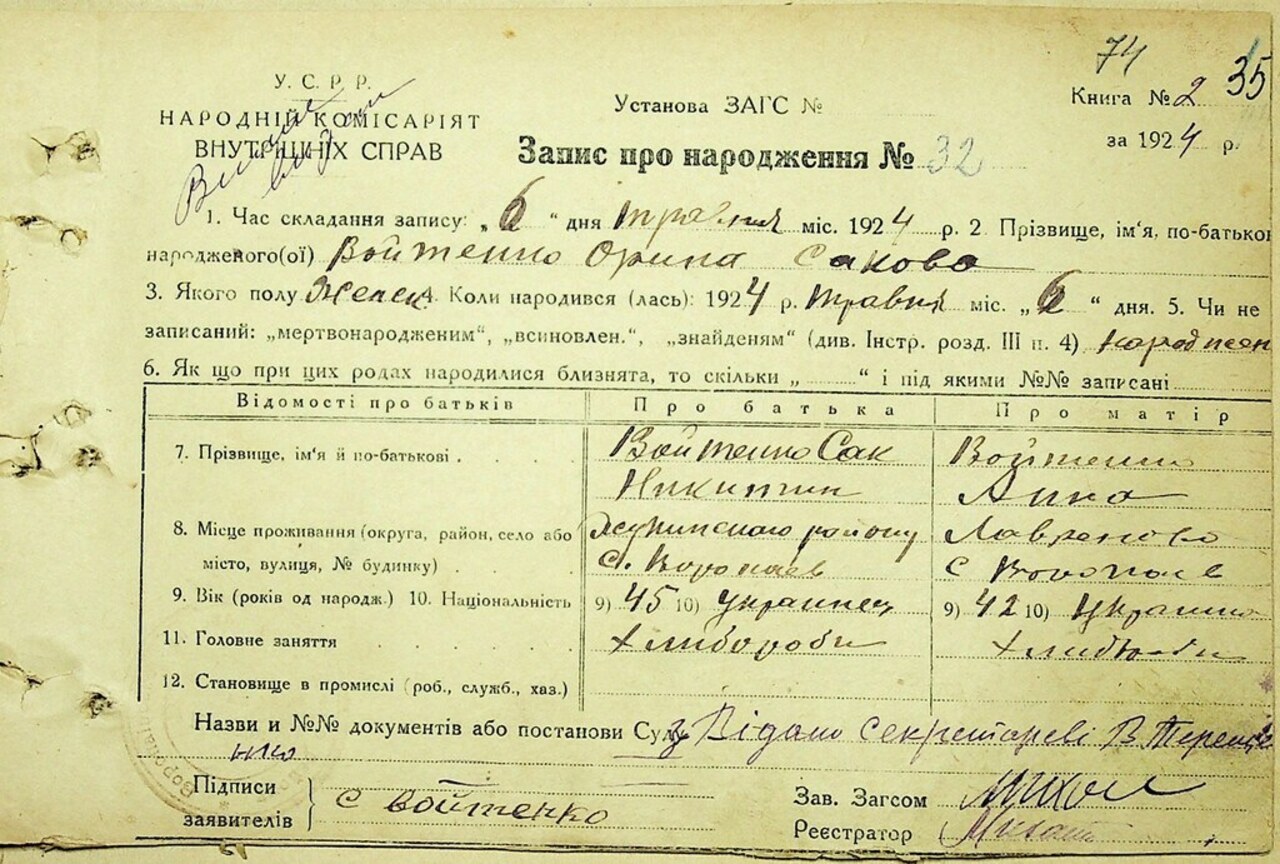 74
35
У. С. Р. Р.
НАРОДНІЙ КОМІСАРІЯТ
ВНУТРІШНІХ СПРАВ
Установа ЗАГС №
Книга № 2
за 1924 р.
Запис про народження № 32
1. Час складання запису: „ 6 “ дня травня міс. 1924 р. 2. Прізвище, ім'я, по-батькові
народженого(ої) Войтенко Орина Сакова
3. Якого полу Женск 4. Коли народився (лась): 1924 р. травня міс. „ 6 “ дня. 5. Чи не
записаний: „мертвонародженим“, „всиновлен.“, „знайденям“ (див. Інстр. розд. III п. 4) народжен
6. Як що при цих родах народилися близнята, то скільки „ “ і під якими №№ записані
Відомості про батьків Про батька Про матір
7. Прізвище, ім'я й по-батькові Войтенко Сак Войтенко
Никитин Анна
8. Місце проживання (округа, район, село або району Лавренова
місто, вулиця, № будинку) с. Воропаев с Воропаев
9. Вік (років од народж.) 10. Національність 9) 45 10) украинец 9) 42 10) украинка
11. Головне заняття хлибороби хлибороби
12. Становище в промислі (роб., служб., хаз.)
Назви и №№ документів або постанови Суду Відано секретареві В Терещен
нко
Підписи
заявителів
С Войтенко
Зав. Загсом
Реєстратор